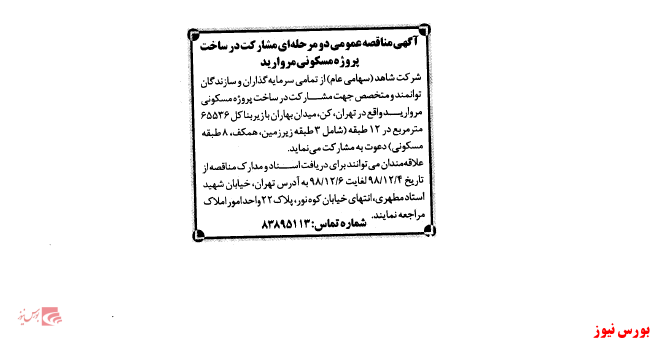 آگهی مناقصه عمومی دو مرحله‌ای مشارکت در ساخت
پروژه مسکونی مروارید
شرکت شاهد (سهامی عام) از تمامی سرمایه‌گذاران و سازندگان
توانمند و متخصص جهت مشارکت در ساخت پروژه مسکونی
مروارید واقع در تهران، کن، میدان بهاران با زیربنا کل ۶۵۵۳۶
مترمربع در ۱۲ طبقه (شامل ۳ طبقه زیرزمین، همکف، ۸ طبقه
مسکونی) دعوت به مشارکت می‌نماید.
علاقه‌مندان می‌توانند برای دریافت اسناد و مدارک مناقصه از
تاریخ ۹۸/۱۲/۴ لغایت ۹۸/۱۲/۶ به آدرس تهران، خیابان شهید
استاد مطهری، انتهای خیابان کوه نور، پلاک ۲۲ واحد امور املاک
مراجعه نمایند.
شماره تماس: ۸۳۸۹۵۱۱۳
بورس نیوز
بورس نیوز